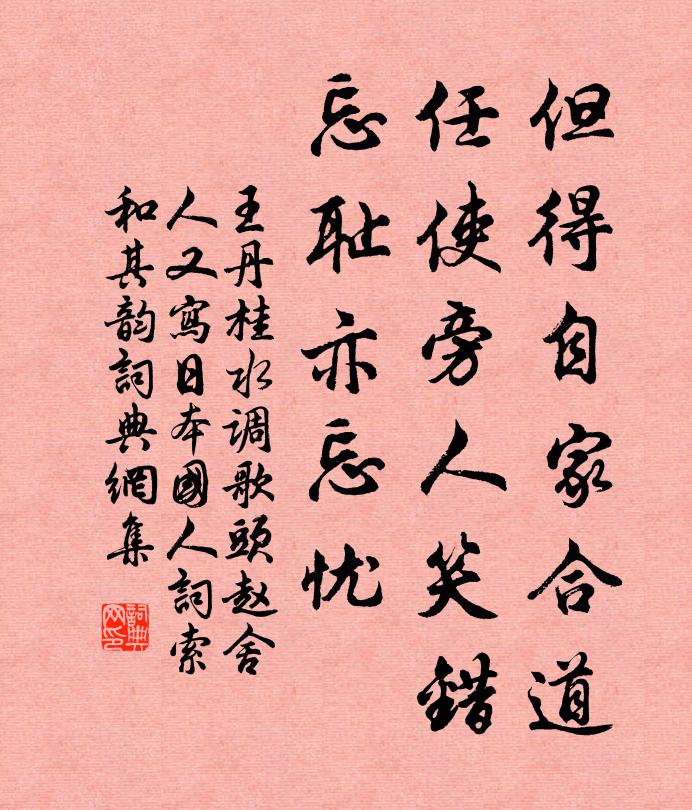 但得自家合道
任使旁人笑錯
忘耻亦忘忧
王丹桂水调歌頭赵舍
人又寫日本國人詞索
和其韵詞典網集
詞典网印